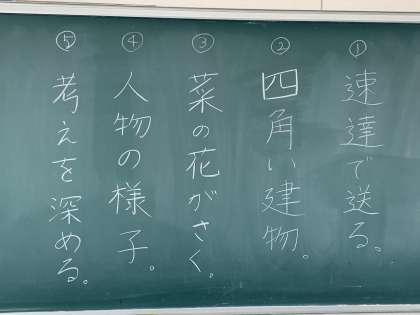 ① 速達で送る。
② 四角い建物。
③ 菜の花がさく。
④ 人物の様子。
⑤ 考えを深める。